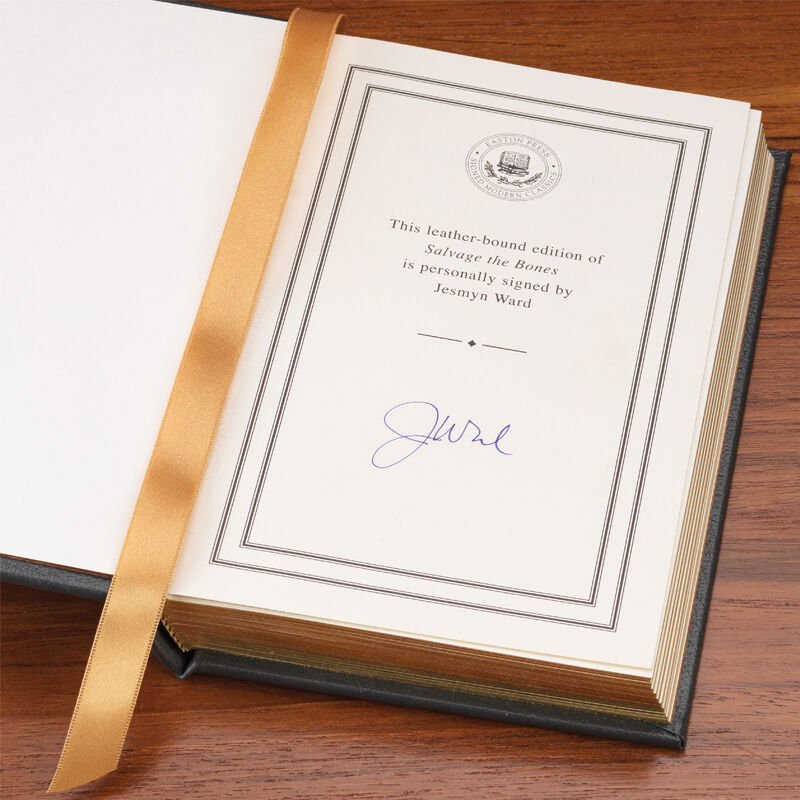 EASTON PRESS
SIGNED MODERN CLASSICS
This leather-bound edition of
Salvage the Bones
is personally signed by
Jesmyn Ward
JWard